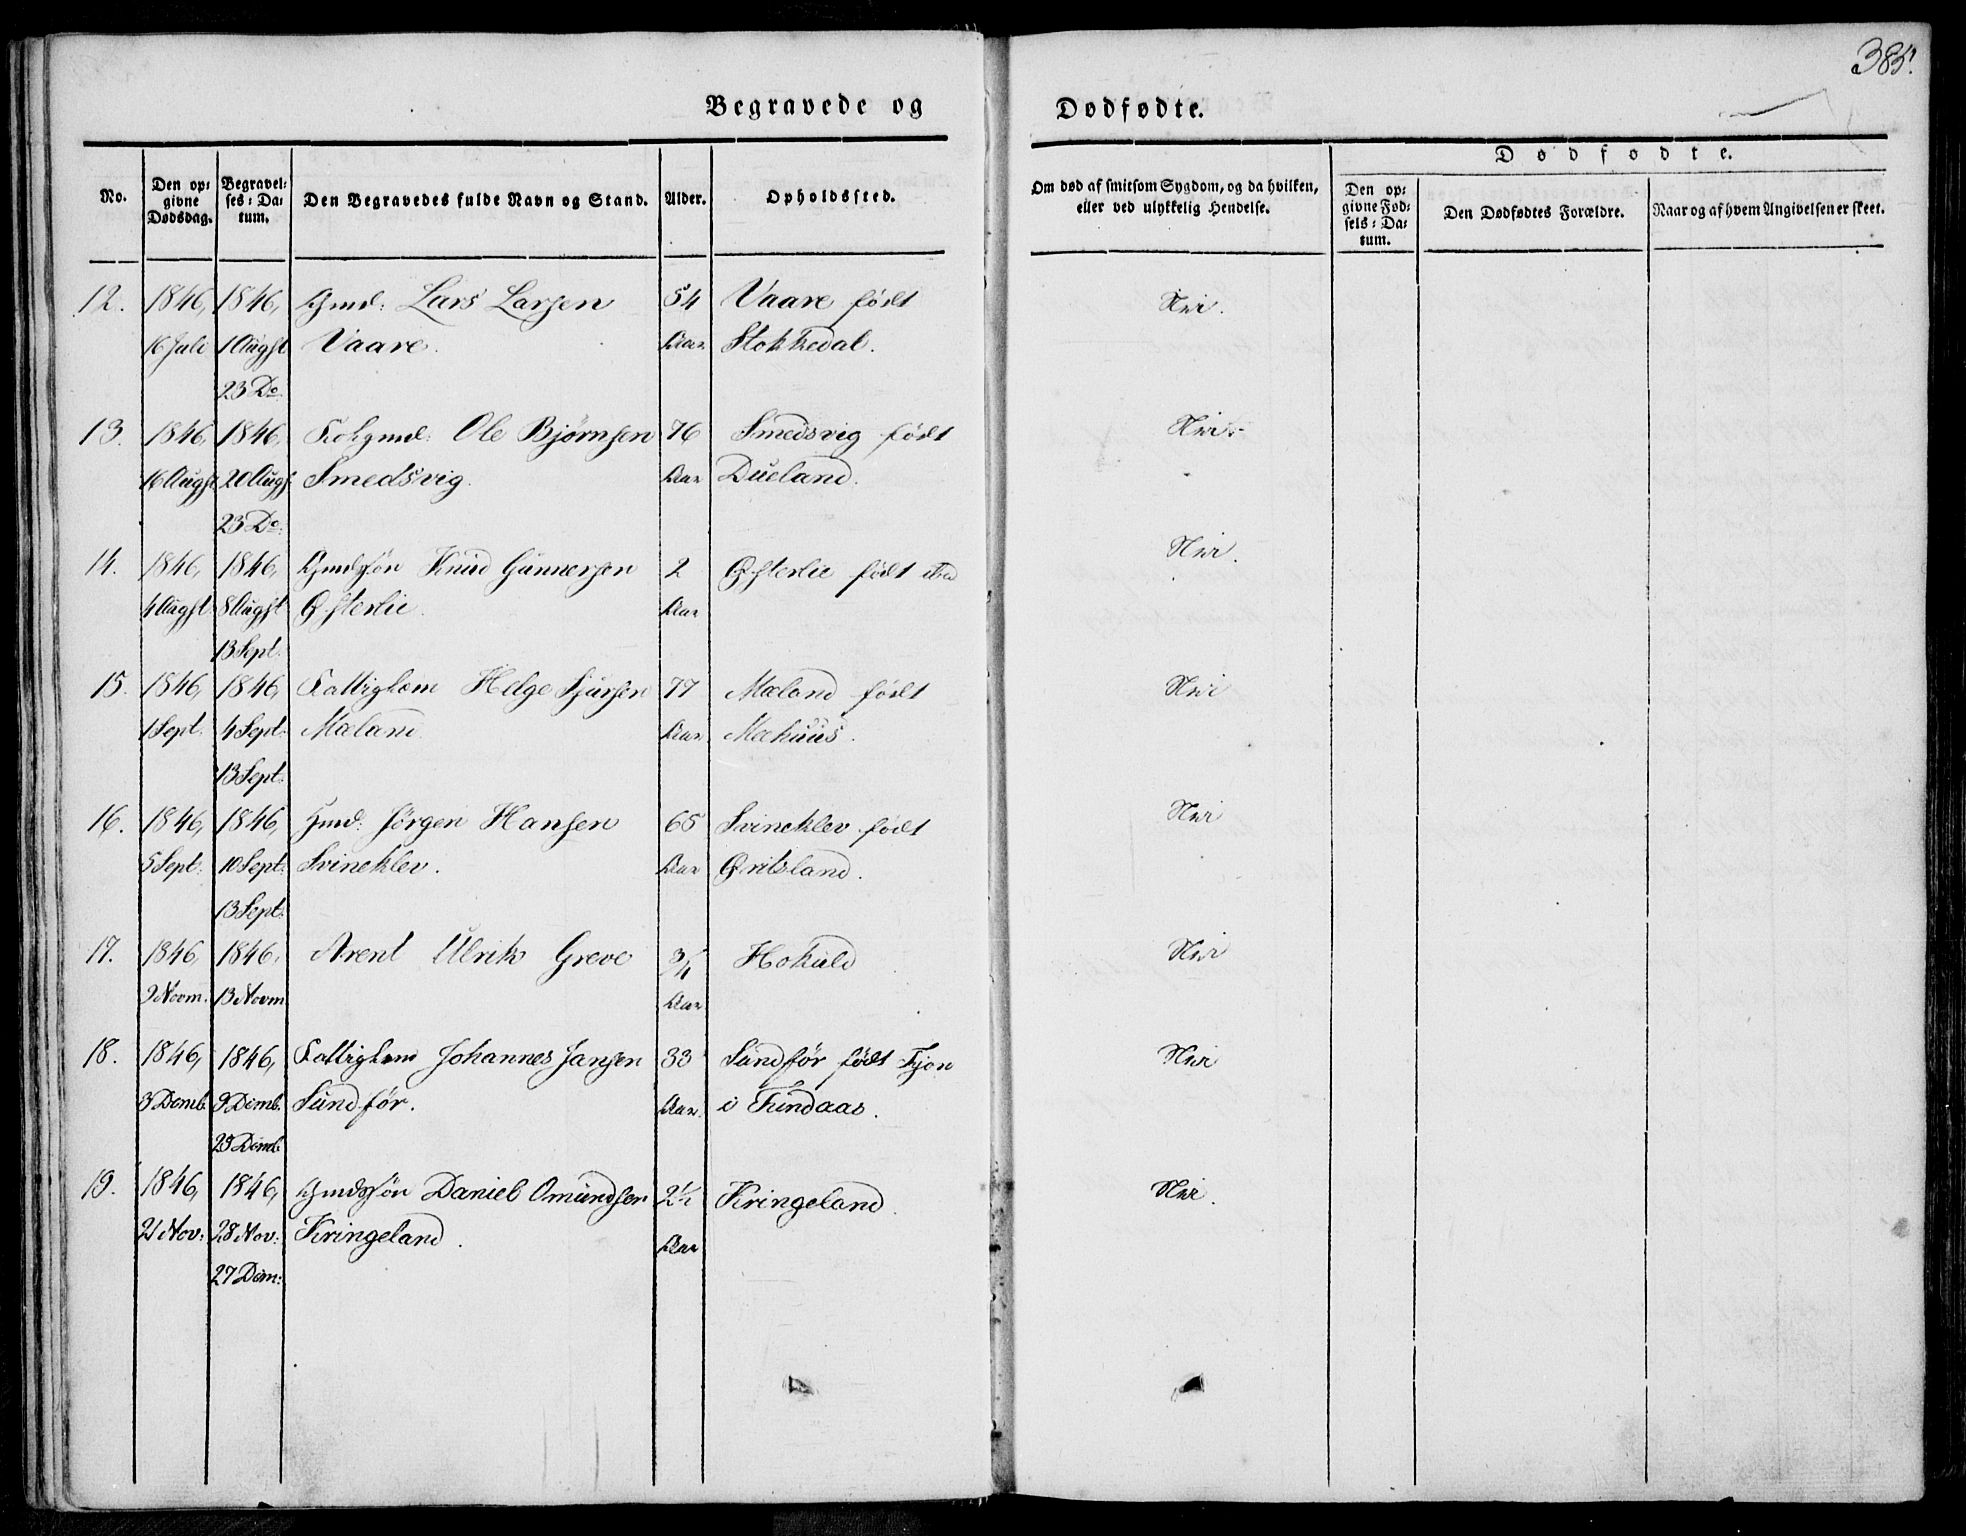 385.
Begravede og Dødfødte.
No.
Den opgivne Dødsdag.
Begravelses-Datum.
Den Begravedes fulde Navn og Stand.
Alder.
Opholdssted.
Om død af smitsom Sygdom, og da hvilken, eller ved ulykkelig Hendelse.
Dødfødte.
Den opgivne Fødsels-Datum.
Den Dødfødtes Forældre.
Naar og af hvem Angivelsen er skeet.
12. 1846, 1846, Gmd: Lars Larsen 54 Vaare født Nei.
16 Juli 1 Augst Vaare. Aar Stokkedal.
23 Do
13. 1846, 1846, Ole Bjørnsen 76 Smedsvig født Nei.
16 Augst 20 Augst Smedsvig. Aar Dueland.
23 Do:
14. 1846, 1846, Gmdssøn Knud Gunnersen 2 Østerlie født Nei.
4 Augst 8 Augst Østerlie. Aar
13 Sept.
15. 1846, 1846, Fattiglem Helge Sjursen 77 Mæland født Nei
1 Sept. 4 Sept: Mæland. Aar Mæhuus.
13 Sept.
16. 1846, 1846, Gmd: Jørgen Hansen 65 Svineklev født Nei
5 Sept: 10 Sept: Svineklev. Aar Øritsland.
13 Sept:
17. 1846, 1846, Arent Ulrik Greve 3/4 Hokuld Nei
9 Novm. 13 Novm Aar
18. 1846, 1846, Fattiglem Johannes Jansen 33 Sundfør født Fjon Nei
3 Demb. 9 Demb. Sundfør. Aar. i Findaas.
25 Demb
19. 1846, 1846, Gmdssøn Daniel Omundsen 2½ Kringeland. Nei.
21 Nov: 28 Nov: Kringeland. Aar
27 Dem: